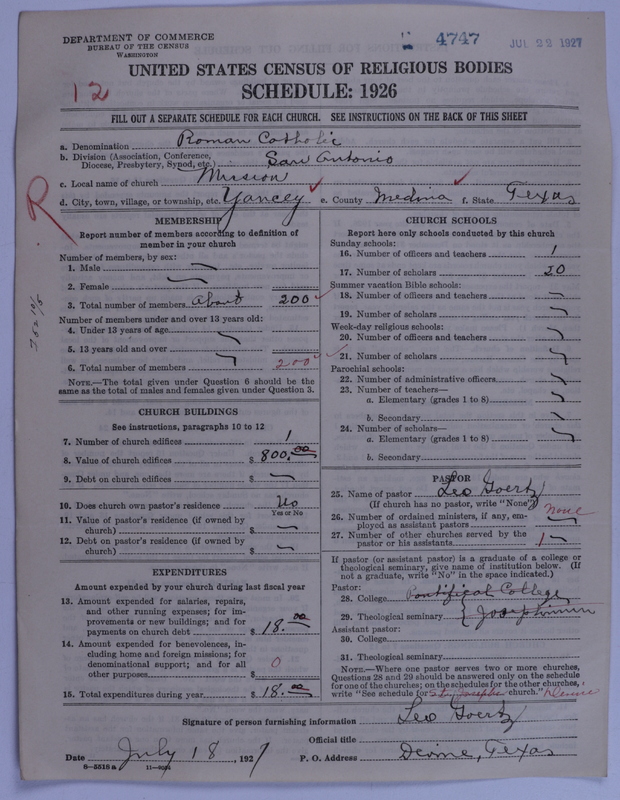 DEPARTMENT OF COMMERCE
BUREAU OF THE CENSUS
WASHINGTON
4747
JUL 22 1927
UNITED STATES CENSUS OF RELIGIOUS BODIES
SCHEDULE: 1926
12
FILL OUT A SEPARATE SCHEDULE FOR EACH CHURCH. SEE INSTRUCTIONS ON THE BACK OF THIS SHEET
a. Denomination Roman Catholic
b. Division (Association, Conference, Diocese, Presbytery, Synod, etc.) San Antonio
c. Local name of church Mission
d. City, town, village, or township, etc. Yancey e. County Medina f. State Texas
R
MEMBERSHIP
Report number of members according to definition of
member in your church
Number of members, by sex:
1. Male
2. Female
3. Total number of members About 200
Number of members under and over 13 years old:
4. Under 13 years of age
5. 13 years old and over
6. Total number of members 200
NOTE.—The total given under Question 6 should be the
same as the total of males and females given under Question 3.
CHURCH BUILDINGS
See instructions, paragraphs 10 to 12
7. Number of church edifices 1
8. Value of church edifices $ 800.00
9. Debt on church edifices $
10. Does church own pastor's residence No
Yes or No
11. Value of pastor's residence (if owned by
church) $
12. Debt on pastor's residence (if owned by
church) $
EXPENDITURES
Amount expended by your church during last fiscal year
13. Amount expended for salaries, repairs,
and other running expenses; for im-
provements or new buildings; and for
payments on church debt $ 18.00
14. Amount expended for benevolences, in-
cluding home and foreign missions; for
denominational support; and for all
other purposes $ 0
15. Total expenditures during year $ 18.00
CHURCH SCHOOLS
Report here only schools conducted by this church
Sunday schools:
16. Number of officers and teachers 1
17. Number of scholars 20
Summer vacation Bible schools:
18. Number of officers and teachers
19. Number of scholars
Week-day religious schools:
20. Number of officers and teachers
21. Number of scholars
Parochial schools:
22. Number of administrative officers
23. Number of teachers—
a. Elementary (grades 1 to 8)
b. Secondary
24. Number of scholars—
a. Elementary (grades 1 to 8)
b. Secondary
PASTOR
25. Name of pastor Leo Goertz
(If church has no pastor, write "None")
26. Number of ordained ministers, if any, em-
ployed as assistant pastors None
27. Number of other churches served by the
pastor or his assistants 1
If pastor (or assistant pastor) is a graduate of a college or
theological seminary, give name of institution below. (If
not a graduate, write "No" in the space indicated.)
Pastor:
28. College Pontifical College
29. Theological seminary Josephinum
Assistant pastor:
30. College
31. Theological seminary
NOTE.—Where one pastor serves two or more churches,
Questions 28 and 29 should be answered only on the schedule
for one of the churches; on the schedules for the other churches,
write "See schedule for St. Josephs church." Devine
Signature of person furnishing information Leo Goertz
Official title
Date July 18, 1927 P. O. Address Devine, Texas
8—5515a 11—9034